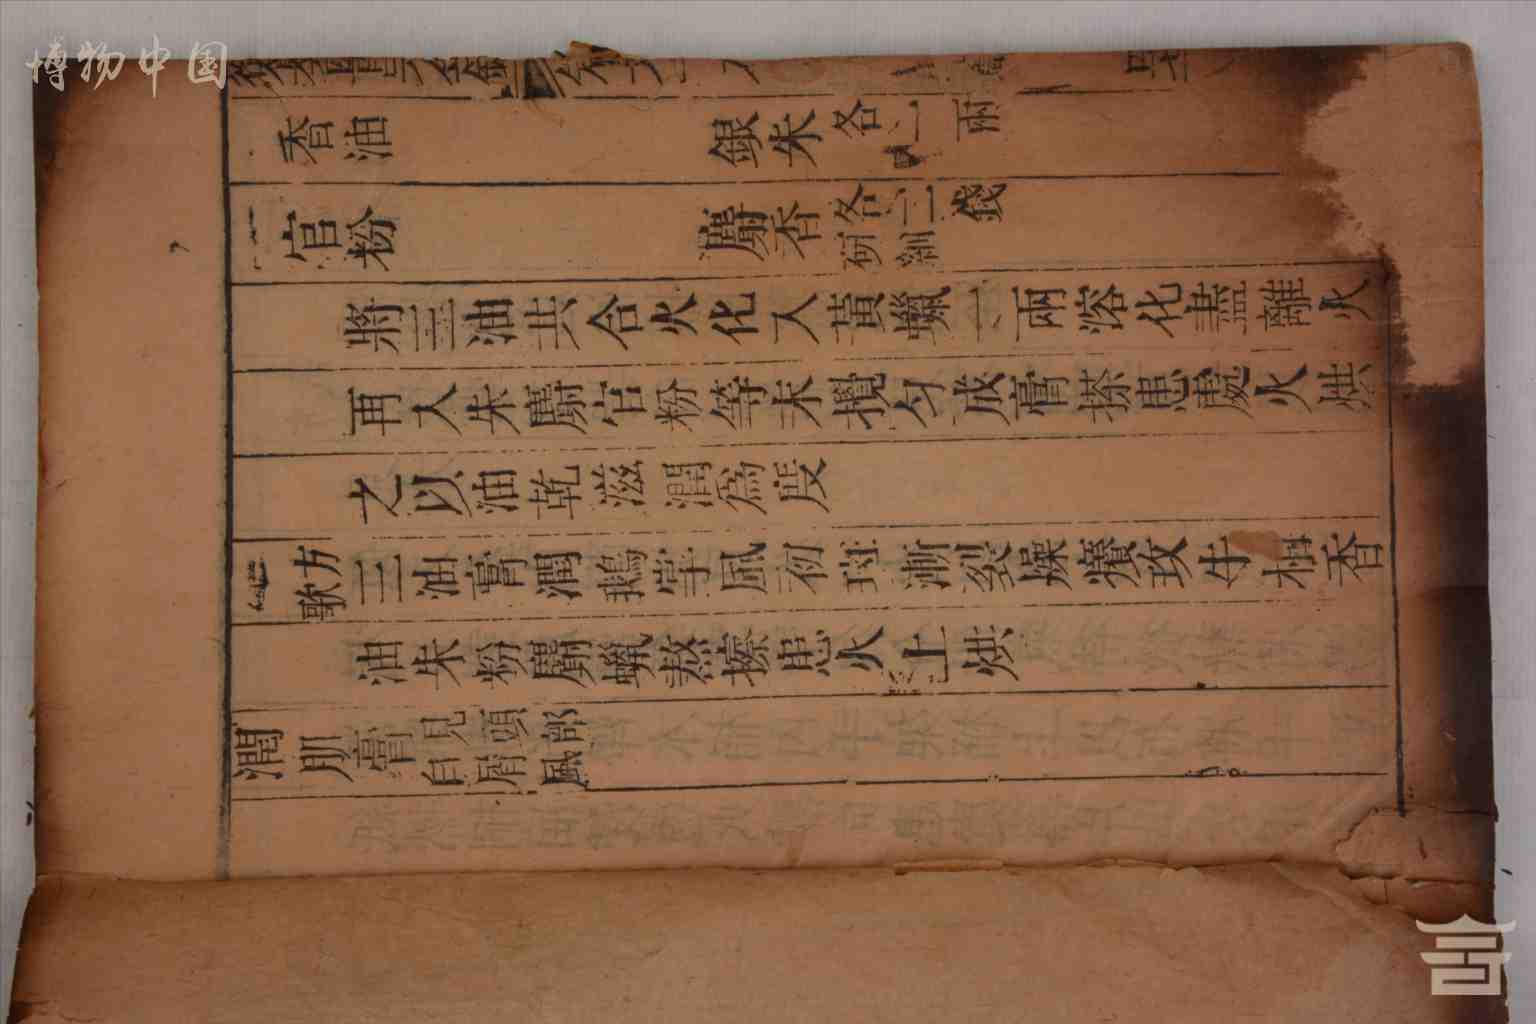 博物中国
香油　銀朱各一兩
官粉　麝香各二錢研細
將三油共合火化入黃蠟一兩溶化盡離火
再入朱麝官粉等末攪勻成膏搽患處火烘
之以油乾滋潤爲度
方歌三油膏潤鵝掌風初斑漸裂燥癢攻牛柏香
油朱粉麝蠟熬擦患火上烘
潤肌膏見頭部白屑風